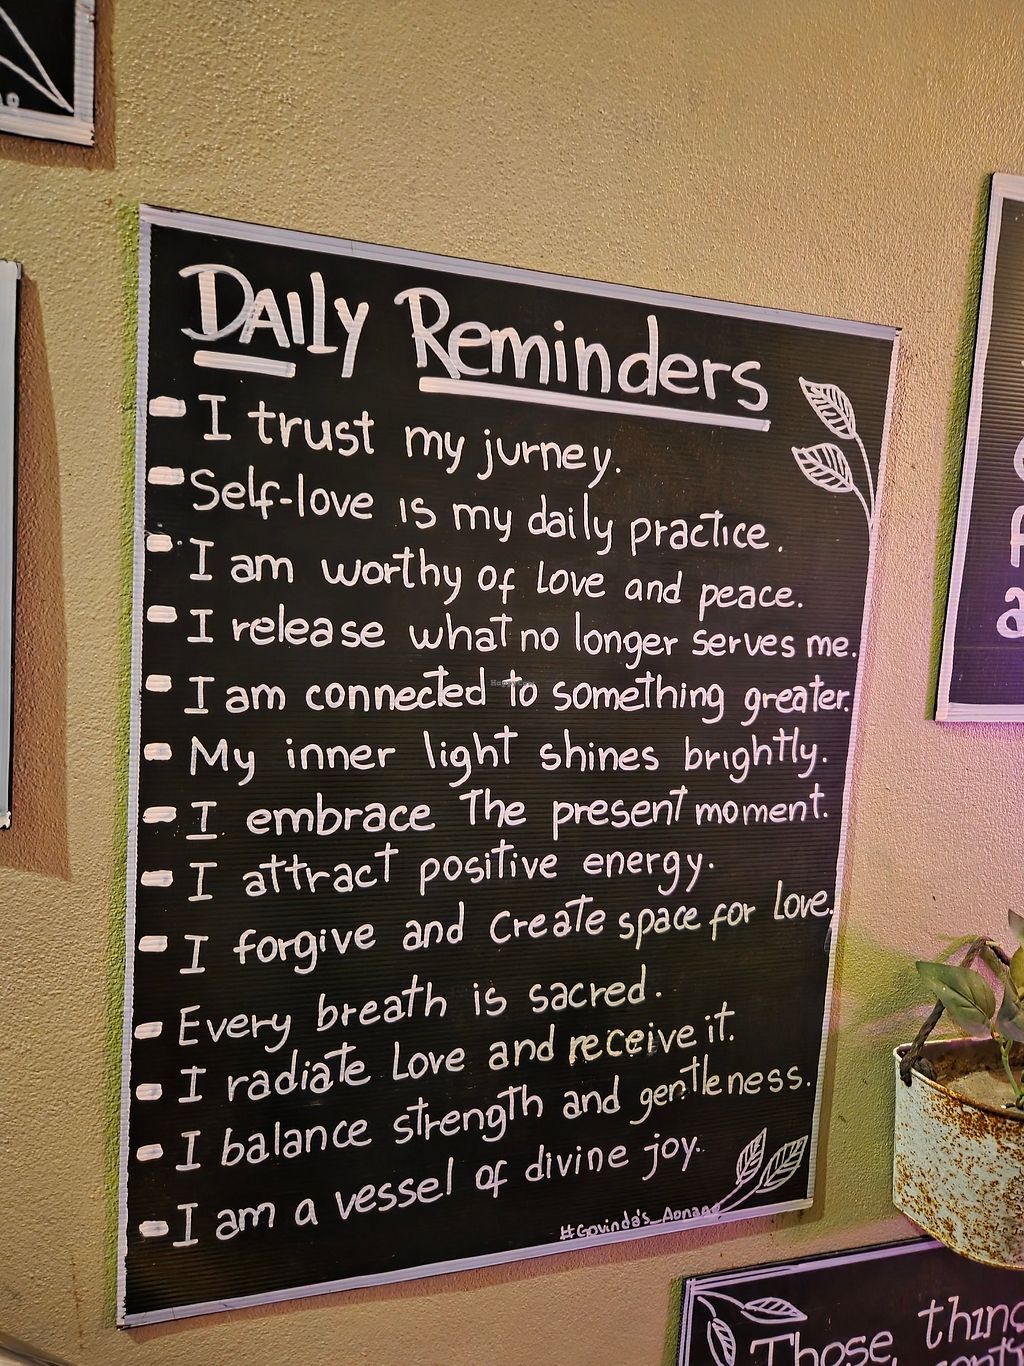 Daily Reminders
- I trust my jurney.
- Self-love is my daily practice.
- I am worthy of love and peace.
- I release what no longer serves me.
- I am connected to something greater.
- My inner light shines brightly.
- I embrace the present moment.
- I attract positive energy.
- I forgive and create space for love.
- Every breath is sacred.
- I radiate love and receive it.
- I balance strength and gentleness.
- I am a vessel of divine joy.
#Govinda's_Aonang
Those